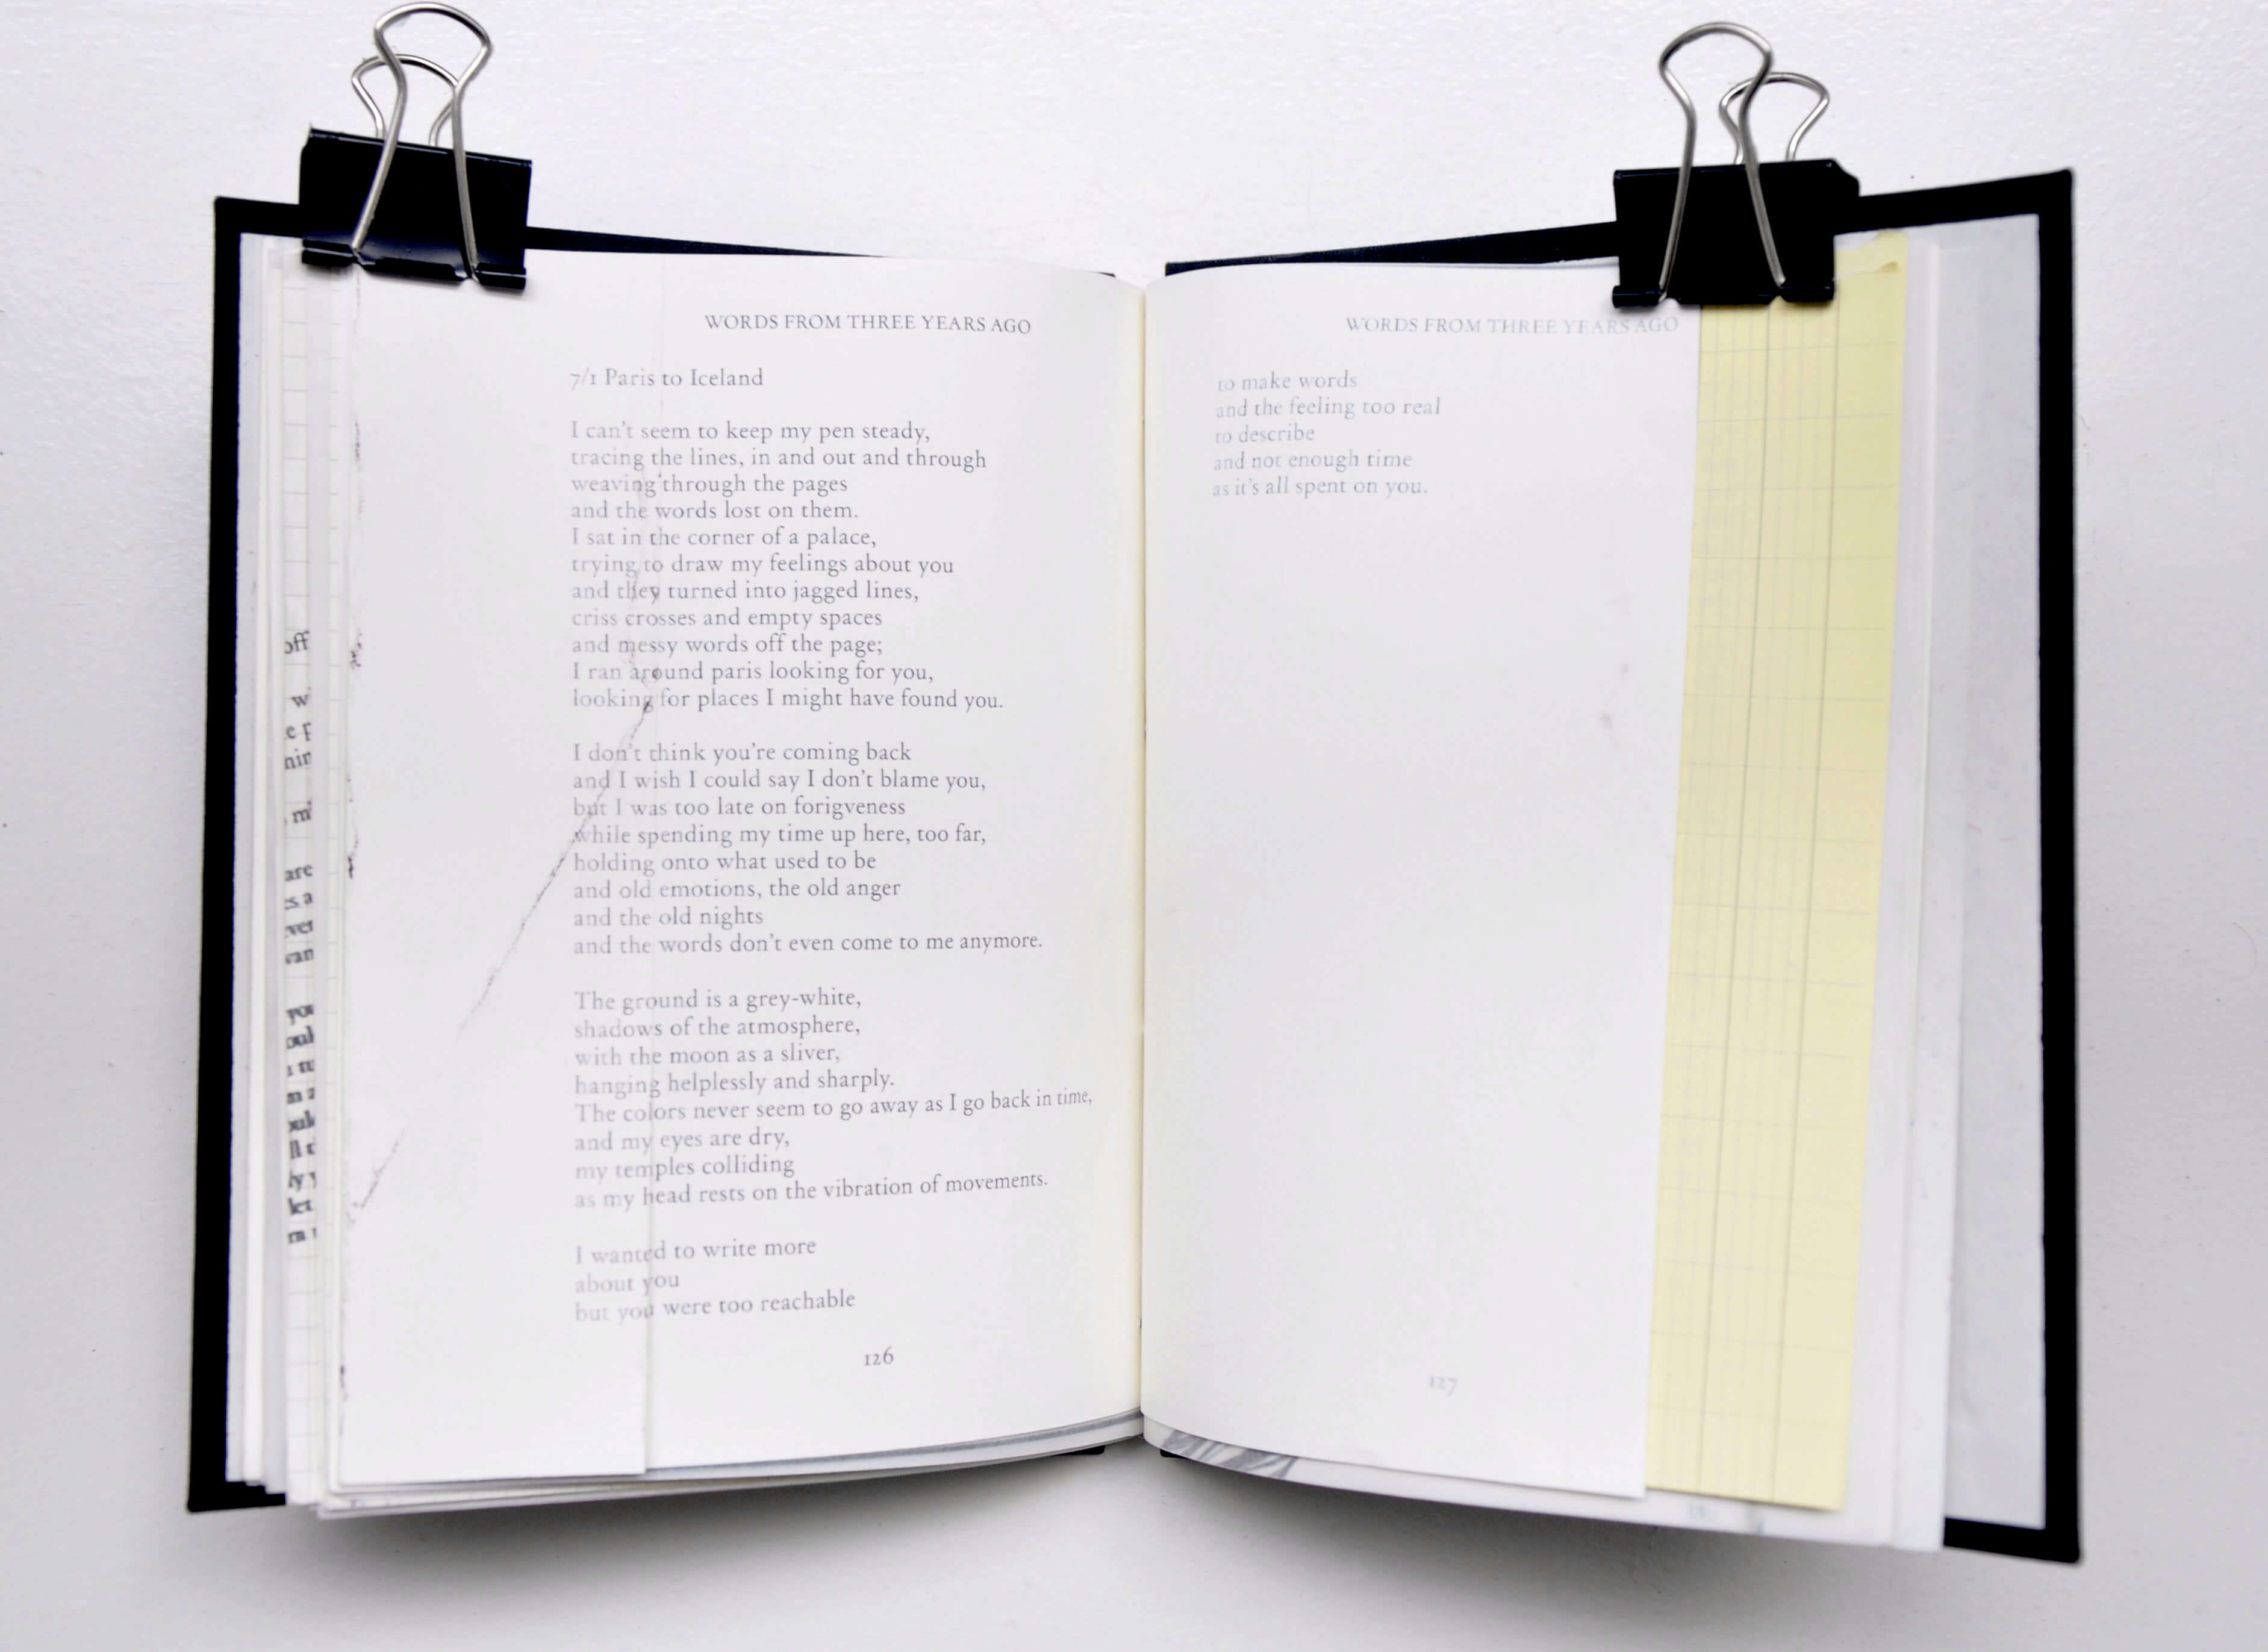 WORDS FROM THREE YEARS AGO
7/1 Paris to Iceland
I can't seem to keep my pen steady,
tracing the lines, in and out and through
weaving through the pages
and the words lost on them.
I sat in the corner of a palace,
trying to draw my feelings about you
and they turned into jagged lines,
criss crosses and empty spaces
and messy words off the page;
I ran around paris looking for you,
looking for places I might have found you.
I don't think you're coming back
and I wish I could say I don't blame you,
but I was too late on forigveness
while spending my time up here, too far,
holding onto what used to be
and old emotions, the old anger
and the old nights
and the words don't even come to me anymore.
The ground is a grey-white,
shadows of the atmosphere,
with the moon as a sliver,
hanging helplessly and sharply.
The colors never seem to go away as I go back in time,
and my eyes are dry,
my temples colliding
as my head rests on the vibration of movements.
I wanted to write more
about you
but you were too reachable
126
WORDS FROM THREE YEARS AGO
to make words
and the feeling too real
to describe
and not enough time
as it's all spent on you.
127
off
w
are